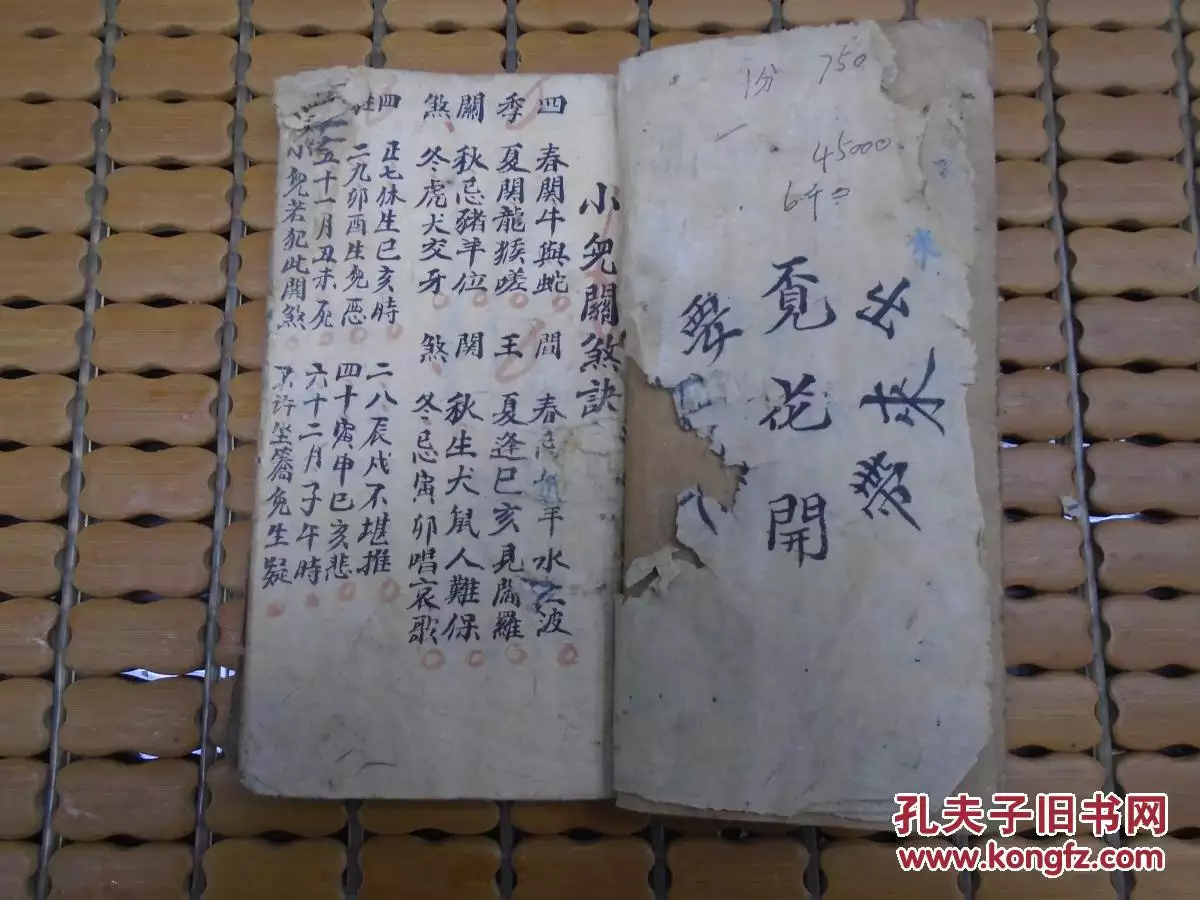 1分 750
45000
6千
出来带
覓花開
小兒關煞訣
四季關煞
春関牛與蛇
夏関龍猴嗟
秋忌豬羊位
冬虎犬交牙
閻王関煞
春忌牛羊水上波
夏逢巳亥見閻羅
秋生犬鼠人難保
冬忌寅卯唱哀歌
四柱
正七休生巳亥時
二八辰戌不堪推
二九卯酉生兒惡
四十寅申巳亥悲
五十一月丑未死
六十二月子午時
小兒若犯此関煞
不許坐轎免生疑
孔夫子旧书网
www.kongfz.com